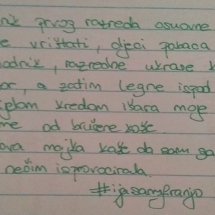 nik prvog razreda osnovne
se vrištati, djeci pokaca
hodnik, razredne ukrase
or, a zatim legne ispod
ijelom kredom
me od bačene kaše
ova majka kaže da sam ga
nečim isprovocirala.
#ijasamfranjo